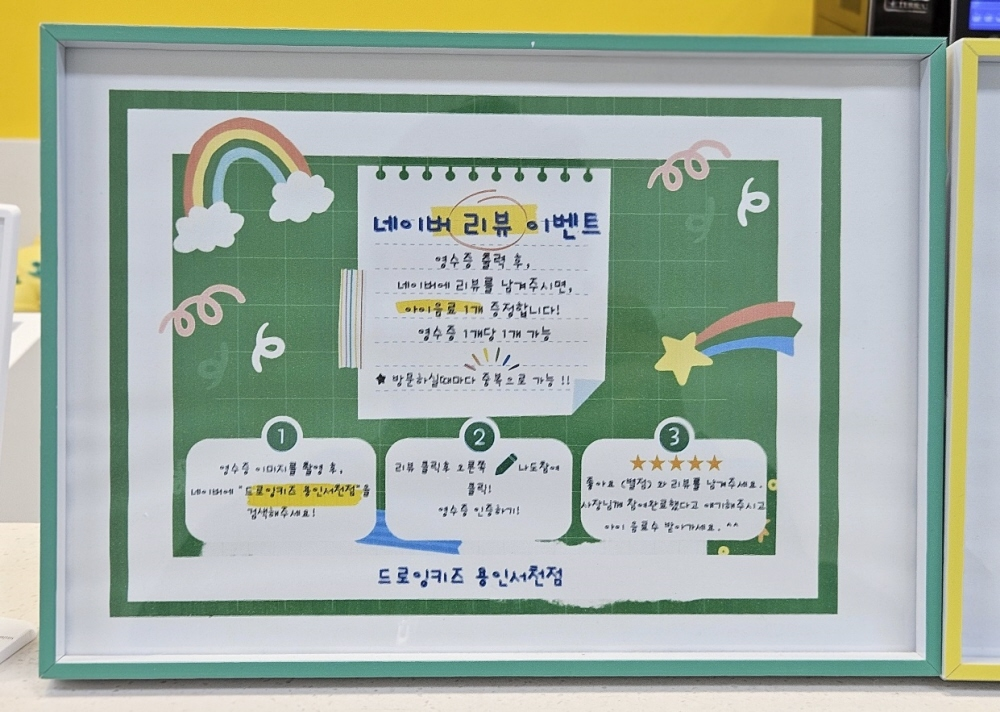 네이버 리뷰 이벤트
영수증 출력 후,
네이버에 리뷰를 남겨주시면,
아이음료 1개 증정합니다!
영수증 1개당 1개 가능
★ 방문하실때마다 중복으로 가능 !!
1
영수증 이미지를 촬영 후,
네이버에 "드로잉키즈 용인서천점"을
검색해주세요!
2
리뷰 클릭후 오른쪽 나도참여
클릭!
영수증 인증하기!
3
좋아요 (별점) 와 리뷰를 남겨주세요.
사장님께 참여완료했다고 얘기해주시고
아이 음료수 받아가세요. ^^
드로잉키즈 용인서천점